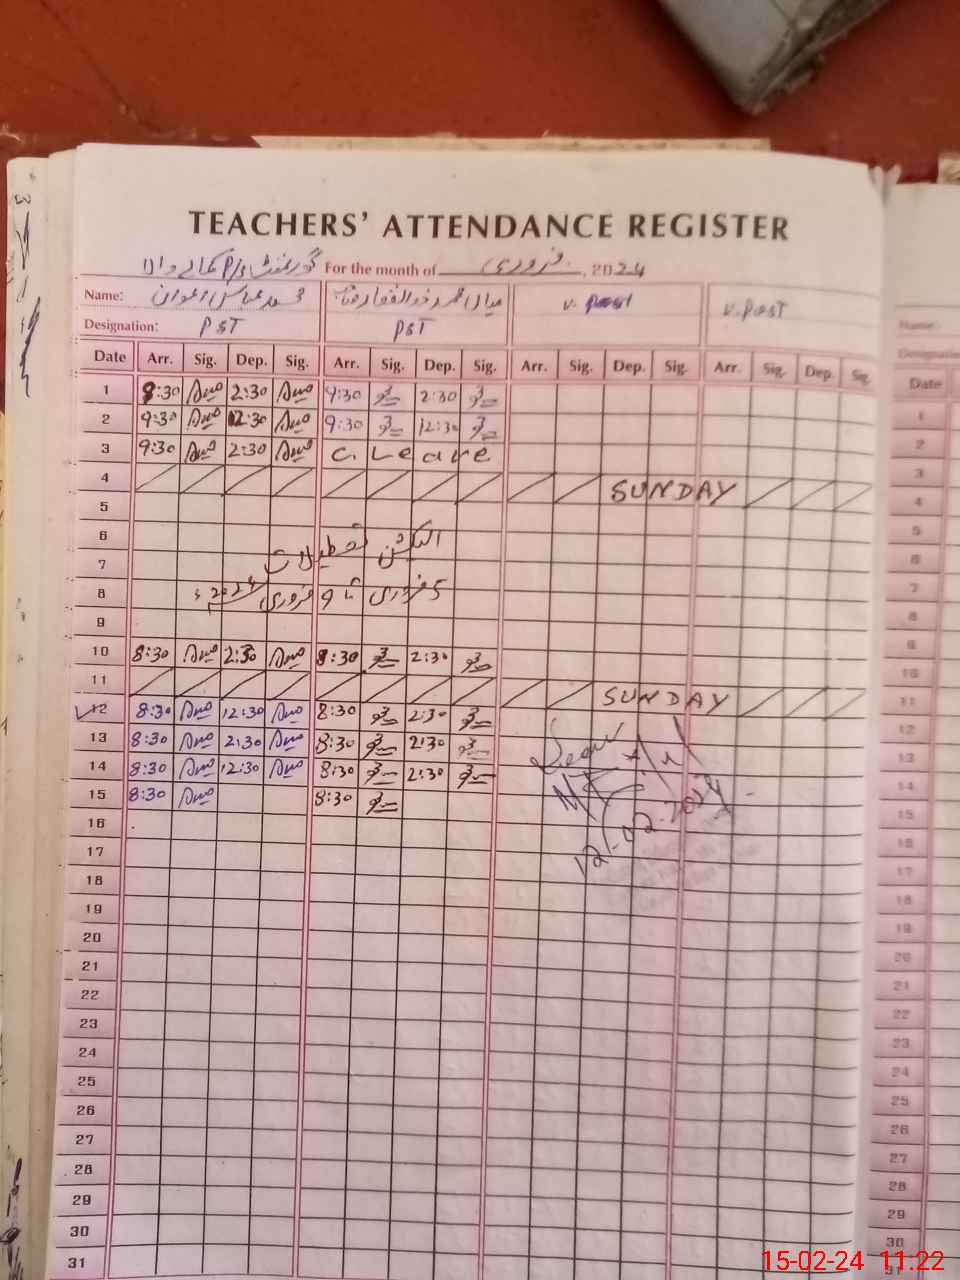 TEACHERS' ATTENDANCE REGISTER
گورنمنٹ P/S کمالے والا For the month of فروری, 2024
Name: محمد عباس اعوان میاں محمد ذوالفقار V. Post V. Post
Designation: PST PST
Date Arr. Sig. Dep. Sig. Arr. Sig. Dep. Sig. Arr. Sig. Dep. Sig. Arr. Sig. Dep. Sig.
1 8:30 2:30 9:30 2:30
2 9:30 12:30 9:30 12:30
3 9:30 2:30 C Leave
4 SUNDAY
5
6 الیکشن تعطیلات
7
8 5 فروری تا 9 فروری 2024ء
9
10 8:30 2:30 8:30 2:30
11 SUNDAY
12 8:30 12:30 8:30 2:30
13 8:30 2:30 8:30 2:30
14 8:30 12:30 8:30 2:30
15 8:30 8:30
12-02-2024
16
17
18
19
20
21
22
23
24
25
26
27
28
29
30
31
Name:
Designation
Date
1
2
3
4
5
6
7
8
9
10
11
12
13
14
15
16
17
18
19
20
21
22
23
24
25
26
27
28
29
30
31
15-02-24 11:22